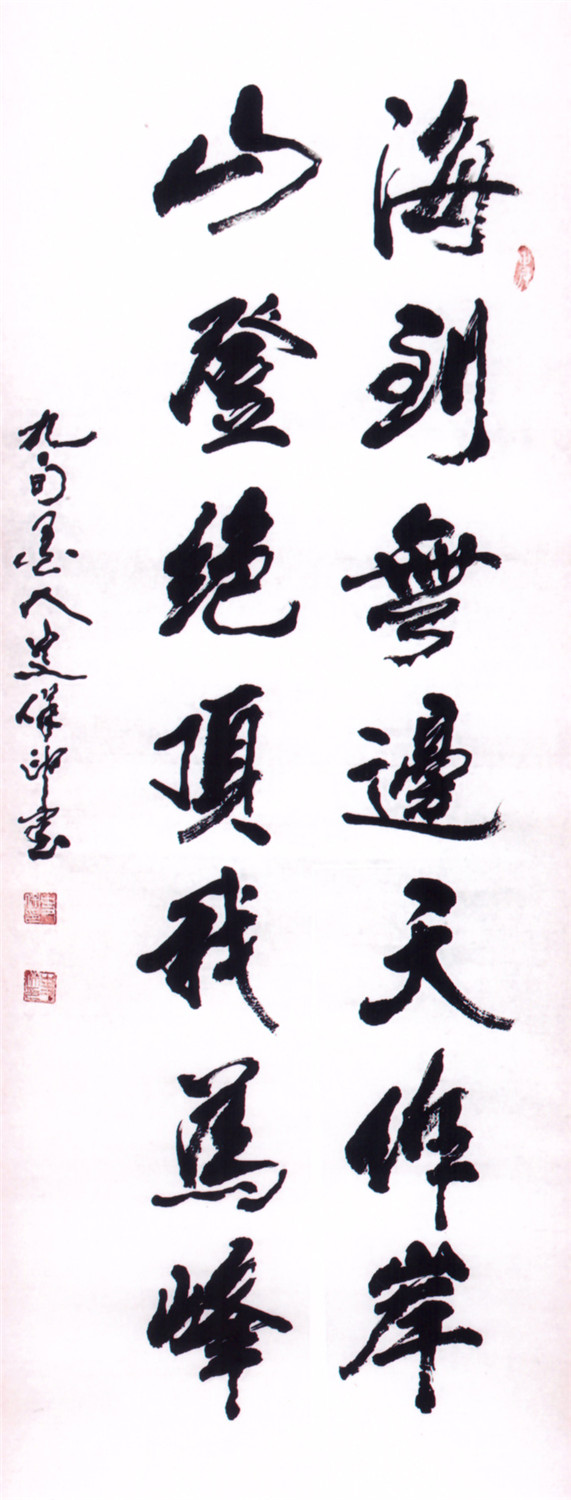 海到無邊天作岸
山登絶頂我為峰
九旬墨人史保印書